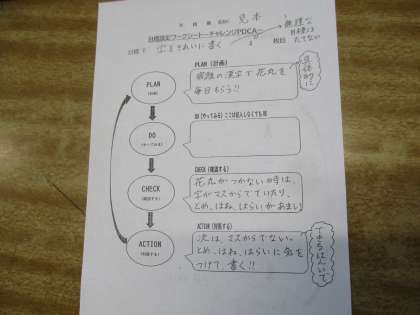 見本
目標設定ワークシート～チャレンジPDCA～
無理な
目標は
たてない
目標：字をきれいに書く
枚目
具体的に
PLAN (計画)
PLAN
宿題の漢字で花丸を
毎日もらう!!
DO (やってみる) ここは記入しなくても可
DO
(やってみる)
CHECK (確認する)
CHECK
(確認する)
花丸がつかない時は、
字がマスからでていたり、
とめ、はね、はらいがあまい
ACTION (対策する)
ACTION
(対策する)
次は、マスからでない。
とめ、はね、はらいに気を
つけて、書く!!